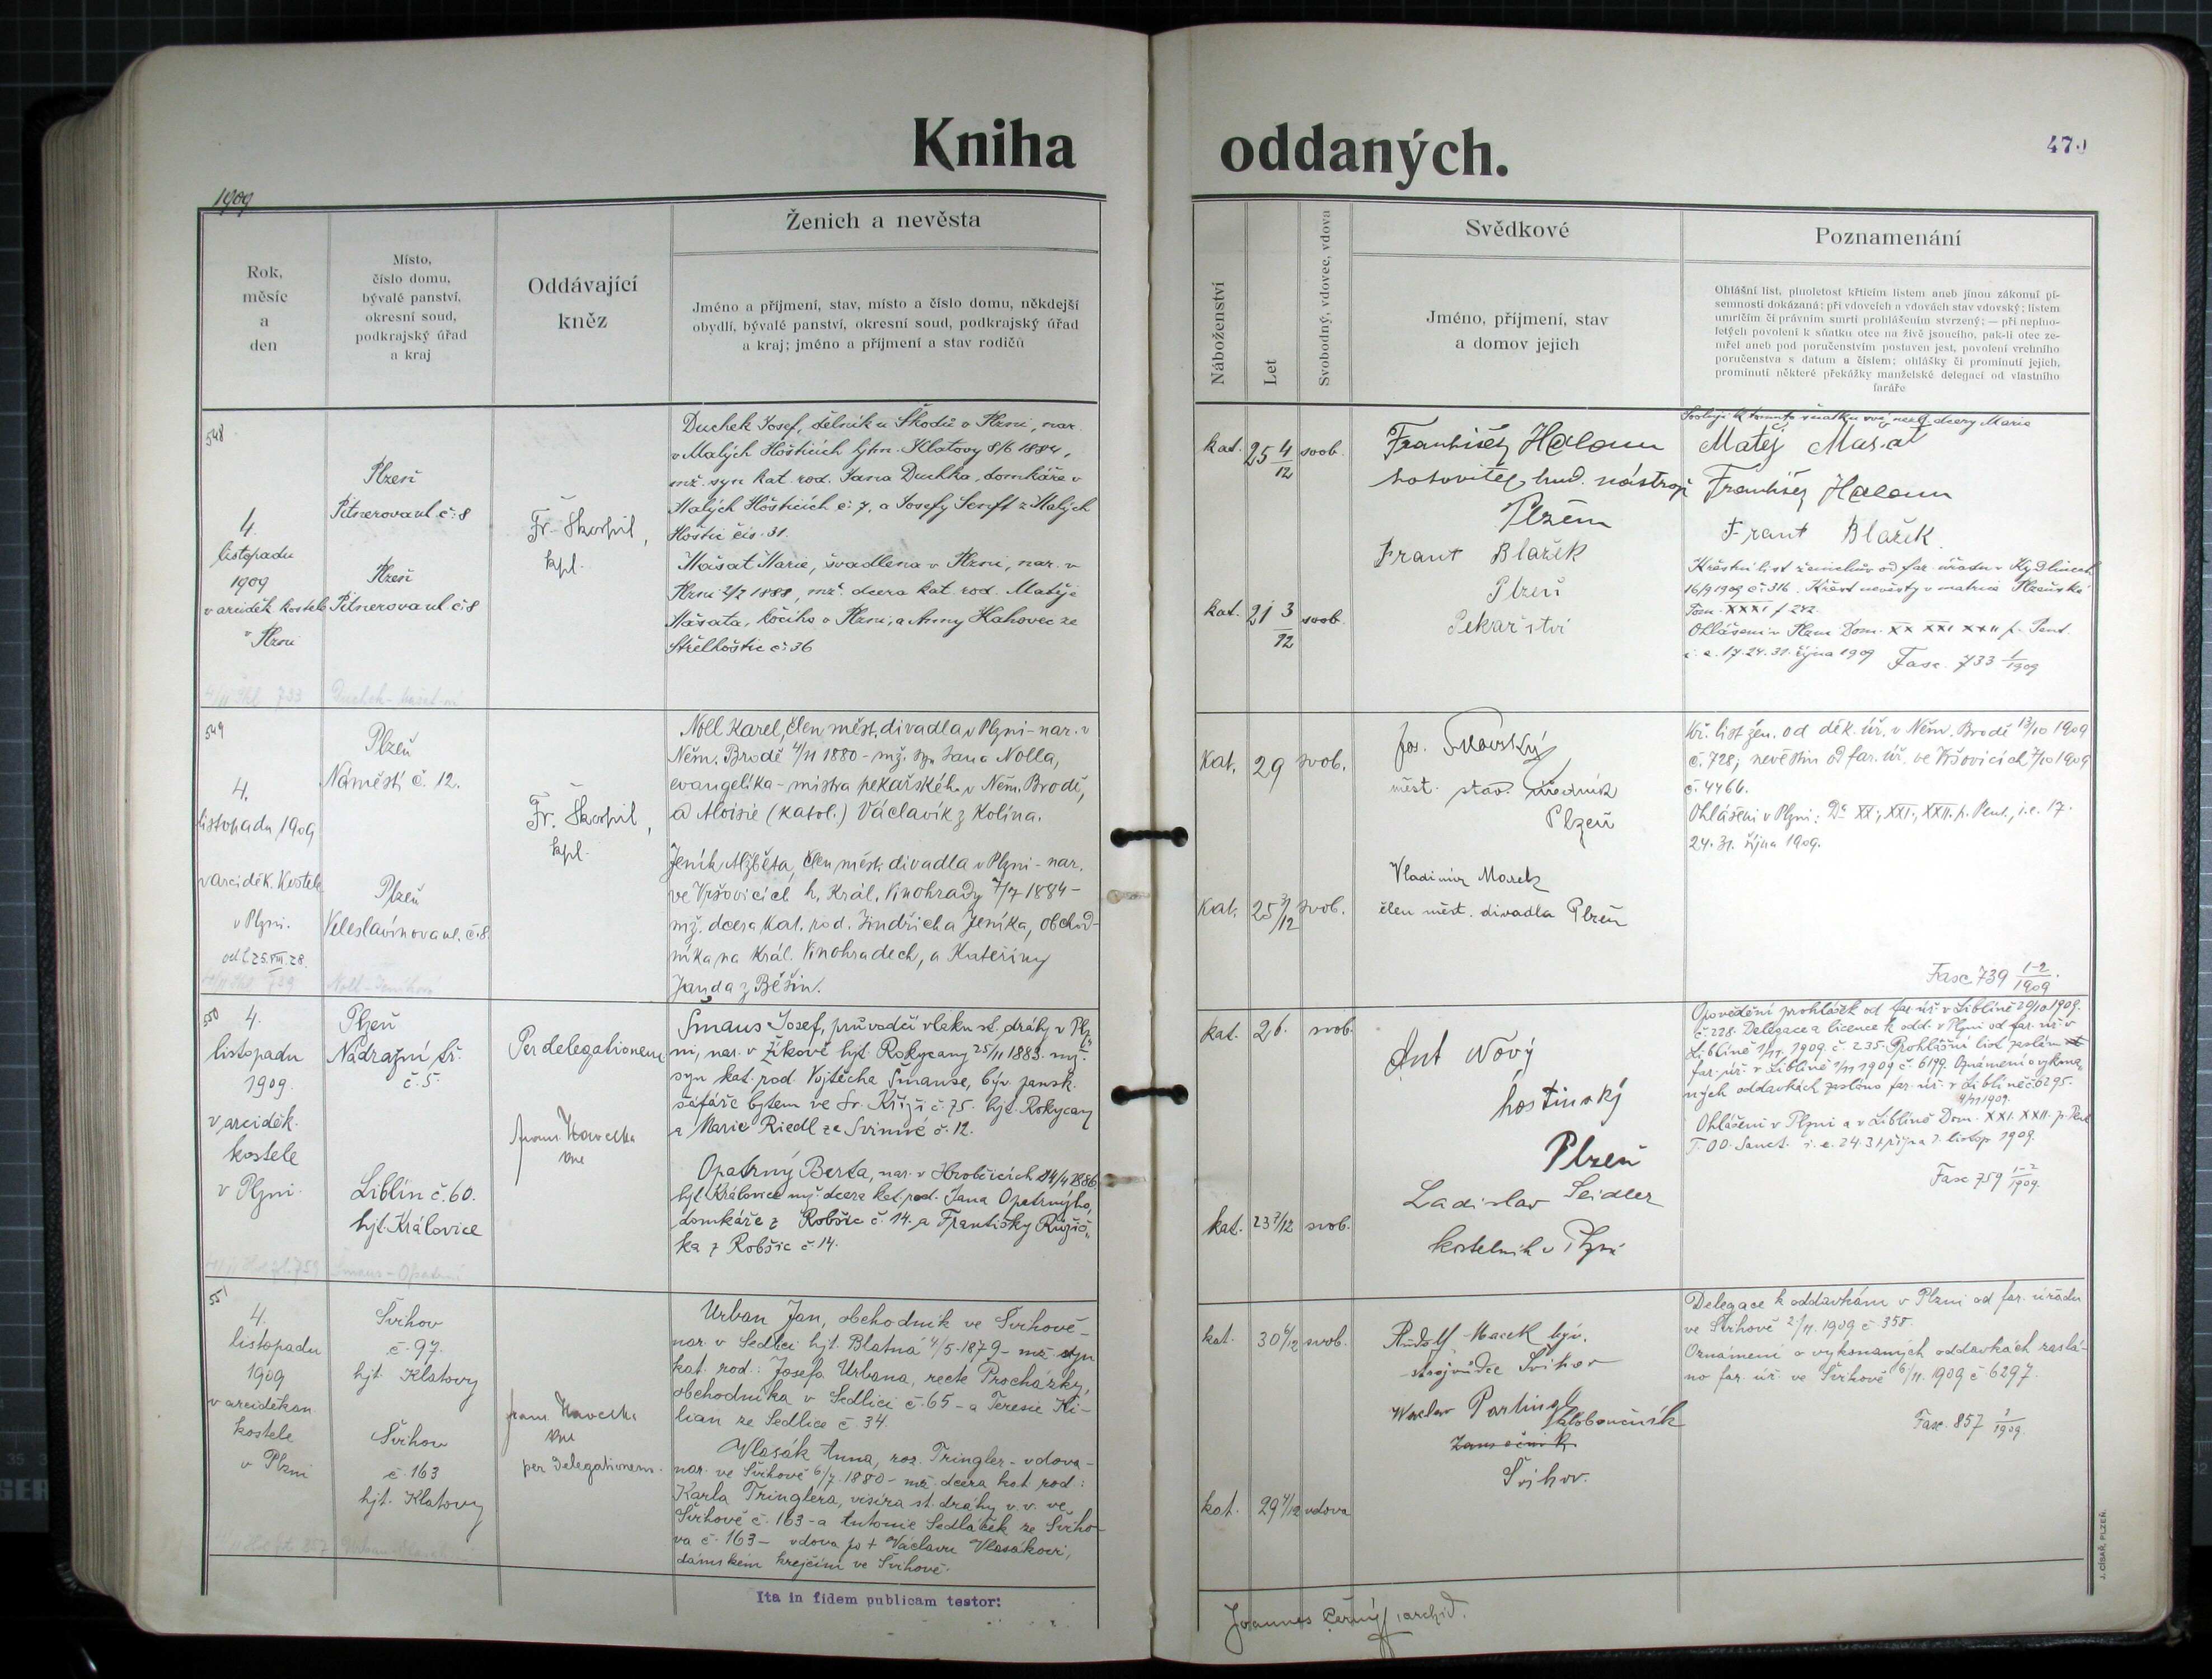 Kniha oddaných.
470
1909
Rok,
měsíc
a
den
Místo,
číslo domu,
bývalé panství,
okresní soud,
podkrajský úřad
a kraj
Oddávající
kněz
Ženich a nevěsta
Jméno a příjmení, stav, místo a číslo domu, někdejší
obydlí, bývalé panství, okresní soud, podkrajský úřad
a kraj; jméno a příjmení a stav rodičů
Náboženství
Let
Svobodný, vdovec, vdova
Svědkové
Jméno, příjmení, stav
a domov jejich
Poznamenání
Ohlášní list, plnoletost křticím listem aneb jinou zákonní pí-
semností dokázaná; při vdovcích a vdovách stav vdovský; listem
umrlčím či právním smrti prohlášením stvrzený; — při neplno-
letých povolení k sňatku otce na živě jsoucího, pak-li otec ze-
mřel aneb pod poručenstvím postaven jest, povolení vrchního
poručenstva s datum a číslem; ohlášky či prominutí jejich,
prominutí některé překážky manželské delegací od vlastního
faráře
548
4.
listopadu
1909
v arciděk. kostele
v Plzni
Plzeň
Pitnerova ul. č: 8
Plzeň
Pitnerova ul č: 8
Fr. Škorpil,
kpl.
Duchek Josef, dělník u Škodů v Plzni, nar.
v Malých Hošticích hjtm. Klatovy 8/6 1884,
mž. syn kat. rod. Jana Duchka, domkáře v
Malých Hošticích č: 7, a Josefy Senft z Malých
Hoštic čís. 31.
Mašat Marie, švadlena v Plzni, nar. v
Plzni 2/7 1888, mž. dcera kat. rod. Matěje
Mašata, kočího v Plzni, a Anny Hahovec ze
Střelhoštic č: 36
kat. 25 4/12 svob.
kat. 21 3/12 svob.
František Halaun
hotovitel hud. nástrojů
Plzeň
Frant Blažek
Plzeň
Pekařství
Svoluji k tomuto sňatku své nezl. dcery Marie
Matěj Mašat
František Halaun
Frant Blažek.
Křestní list ženichův od far. úřadu v Kydlinech
16/9 1909 č: 316. Křest nevěsty v matrice Plzeňské
Tom. XXXI f 242.
Ohlášeni v Plzni Dom. XX XXI XXII p. Pent.
i. e. 17. 24. 31. října 1909 Fasc. 733 1/1909
549
4.
listopadu 1909
v arciděk. kostele
v Plzni.
Plzeň
Náměstí č. 12.
Plzeň
Veleslavínova ul. č. 8.
Fr. Škorpil,
kpl.
Noll Karel, člen měst. divadla v Plzni - nar. v
Něm. Brodě 4/11 1880 - mž. syn Jana Nolla,
evangelíka - mistra pekařského v Něm. Brodě,
a Aloisie (katol.) Václavík z Kolína.
Jeník Alžběta, člen měst. divadla v Plzni - nar.
ve Vršovicích h. Král. Vinohrady 7/7 1884 -
mž. dcera kat. rod. Jindřicha Jeníka, obchod-
níka na Král. Vinohradech, a Kateřiny
Janda z Běšin.
kat. 29 svob.
kat. 25 3/12 svob.
měst. stav. úředník
Plzeň
Vladimír Marek
člen měst. divadla Plzeň
Kř. list žen. od děk. úř. v Něm. Brodě 13/10 1909
č. 728; nevěstin od far. úř. ve Vršovicích 7/10 1909
č. 4466.
Ohlášeni v Plzni: D. XX., XXI., XXII. p. Pent., i. e. 17.
24. 31. října 1909.
Fasc. 739 1-2/1909.
550
4.
listopadu
1909.
v arciděk.
kostele
v Plzni.
Plzeň
Nádražní tř.
č. 5.
Liblín č. 60.
hjt. Královice
Per delegationem
Šmaus Josef, průvodčí vlaku st. dráhy v Plz-
ni, nar. v Žikově hjt. Rokycany 25/11 1883. mž.
syn kat. rod. Vojtěcha Šmause, býv. pansk.
šafáře bytem ve Sv. Kříži č. 75. hjt. Rokycany
a Marie Riedl ze Svinné č. 12.
Opatrný Berta, nar. v Hrobčicích 14/4 1886
hjt. Královice mž. dcera kat. rod. Jana Opatrnýho,
domkáře z Robšic č. 14. a Františky Růžič-
ka z Robšic č. 14.
kat. 26. svob.
kat. 23 7/12 svob.
Ant Nový
hostinský
Plzeň
Ladislav Seidler
kostelník v Plzni
Opovědění prohlášek od far. úř. v Liblíně 20/10 1909.
č. 228. Delegace a licence k odd. v Plzni od far. úř. v
Liblíně 1/11 1909. č. 235. Prohlášní list zaslán
far. úř. v Liblíně 2/11 1909 č. 6199. Oznámení o vykona-
ných oddavkách zasláno far. úř. v Liblíně č. 6295.
4/11 1909.
Ohlášeni v Plzni a v Liblíně Dom. XXI. XXII. p. Pent
F. OO. Sanct. i. e. 24. 31 října 1. listop. 1909.
Fasc 759 1-2/1909.
551
4.
listopadu
1909
v arciděkan.
kostele
v Plzni
Švihov
č. 97.
hjt. Klatovy
Švihov
č. 163
hjt. Klatovy
per delegationem.
Urban Jan, obchodník ve Švihově -
nar. v Sedlici hjt. Blatná 4/5. 1879 - mž. syn
kat. rod.: Josefa Urbana, recte Procházky,
obchodníka v Sedlici č. 65 - a Teresie Ki-
lian ze Sedlice č. 34.
Vlasák Anna, roz. Tringler - vdova -
nar. ve Švihově 6/7. 1880 - mž. dcera kat. rod.:
Karla Tringlera, visíra st. dráhy v. v. ve
Švihově č. 163 - a Antonie Sedláček ze Šviho-
va č. 163 - vdova po + Václavu Vlasákovi,
dámském krejčím ve Švihově.
kat. 30 6/12 svob.
kat. 29 4/12 vdova
Rudolf Macek býv.
strojvůdce Švihov
kloboučník
Švihov.
Delegace k oddavkám v Plzni od far. úřadu
ve Švihově 2/11. 1909 č. 358.
Oznámení o vykonaných oddavkách zaslá-
no far. úř. ve Švihově 6/11. 1909 č 6297.
Fasc. 857 1/1909.
Ita in fidem publicam testor:
Joannes Černý, archid.
J. CÍSAŘ, PLZEŇ.